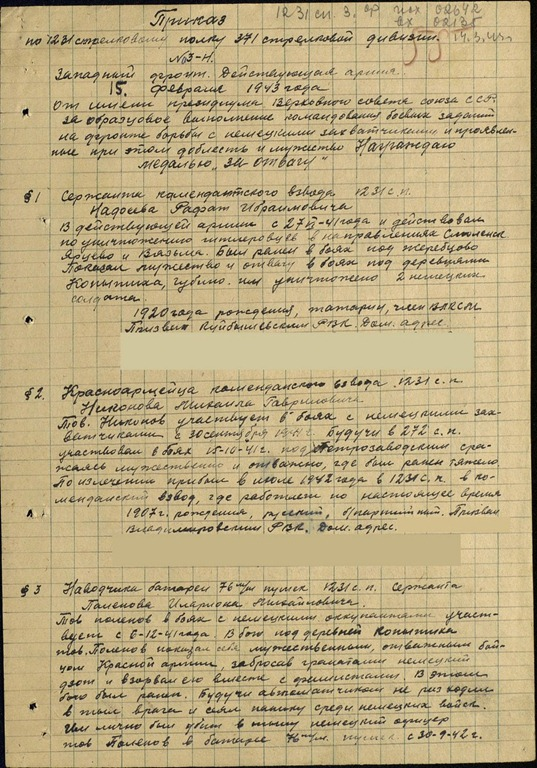 1231 сп. 3. ф исх 02642
вх 02135
14.3.43г.
Приказ
по 1231 стрелковому полку 371 стрелковой дивизии.
№3-н.
Западный фронт. Действующая армия.
15. Февраля 1943 года
От имени президиума Верховного совета союза ССР.
за образцовое выполнение командования боевых заданий
на фронте борьбы с немецкими захватчиками и проявлен-
ные при этом доблесть и мужество Награждаю
медалью „За отвагу"
§1 Сержанта комендантского взвода 1231 с.п.
Надоева Рафат Ибраимовича
В действующей армии с 27 VI-41 года и действовал
по уничтожению гитлеровцев в направлениях Смоленск
Ярцево и Вязьма. Был ранен в боях под Жеребцово
Показал мужество и отвагу в боях под деревнями
Копытиха, Губино. им уничтожено 2 немецких
солдата.
1920 года рождения, татарин, член ВЛКСМ
Призван Куйбышевским РВК. Дом. адрес.
§2. Красноармейца комендантского взвода 1231 с.п.
Никонова Михаила Гавриловича.
Тов. Никонов участвует в боях с немецкими зах-
ватчиками с 30 сентября 1941 г. Будучи в 272 с.п.
участвовал в боях 15-10-41 г. под Петрозаводским сра-
жаясь мужественно и отважно, где был ранен тяжело.
По излечении прибыл в июле 1942 года в 1231 с.п. в ко-
мендантский взвод, где работает по настоящее время
1907 г. рождения, русский, б/партийный. Призван
Владимировским РВК. Дом. адрес.
§3 Наводчика батареи 76 м/м пушек 1231 с.п. сержанта
Поленова Илариона Михайловича.
Тов Поленов в боях с немецкими оккупантами участ-
вует с 6-12-41 года. В бою под деревней Копытиха
тов. Поленов показал себя мужественным, отважным бой-
цом Красной армии, забросав гранатами немецкий
дзот и взорвал его вместе с фашистами. В этом
бою был ранен. Будучи автоматчиком не раз ходил
в тыл врага и сеял панику среди немецких войск.
Им лично был убит в тылу немецкий офицер
тов Поленов в батарее 76 м/м. пушек с 30-9-42 г.